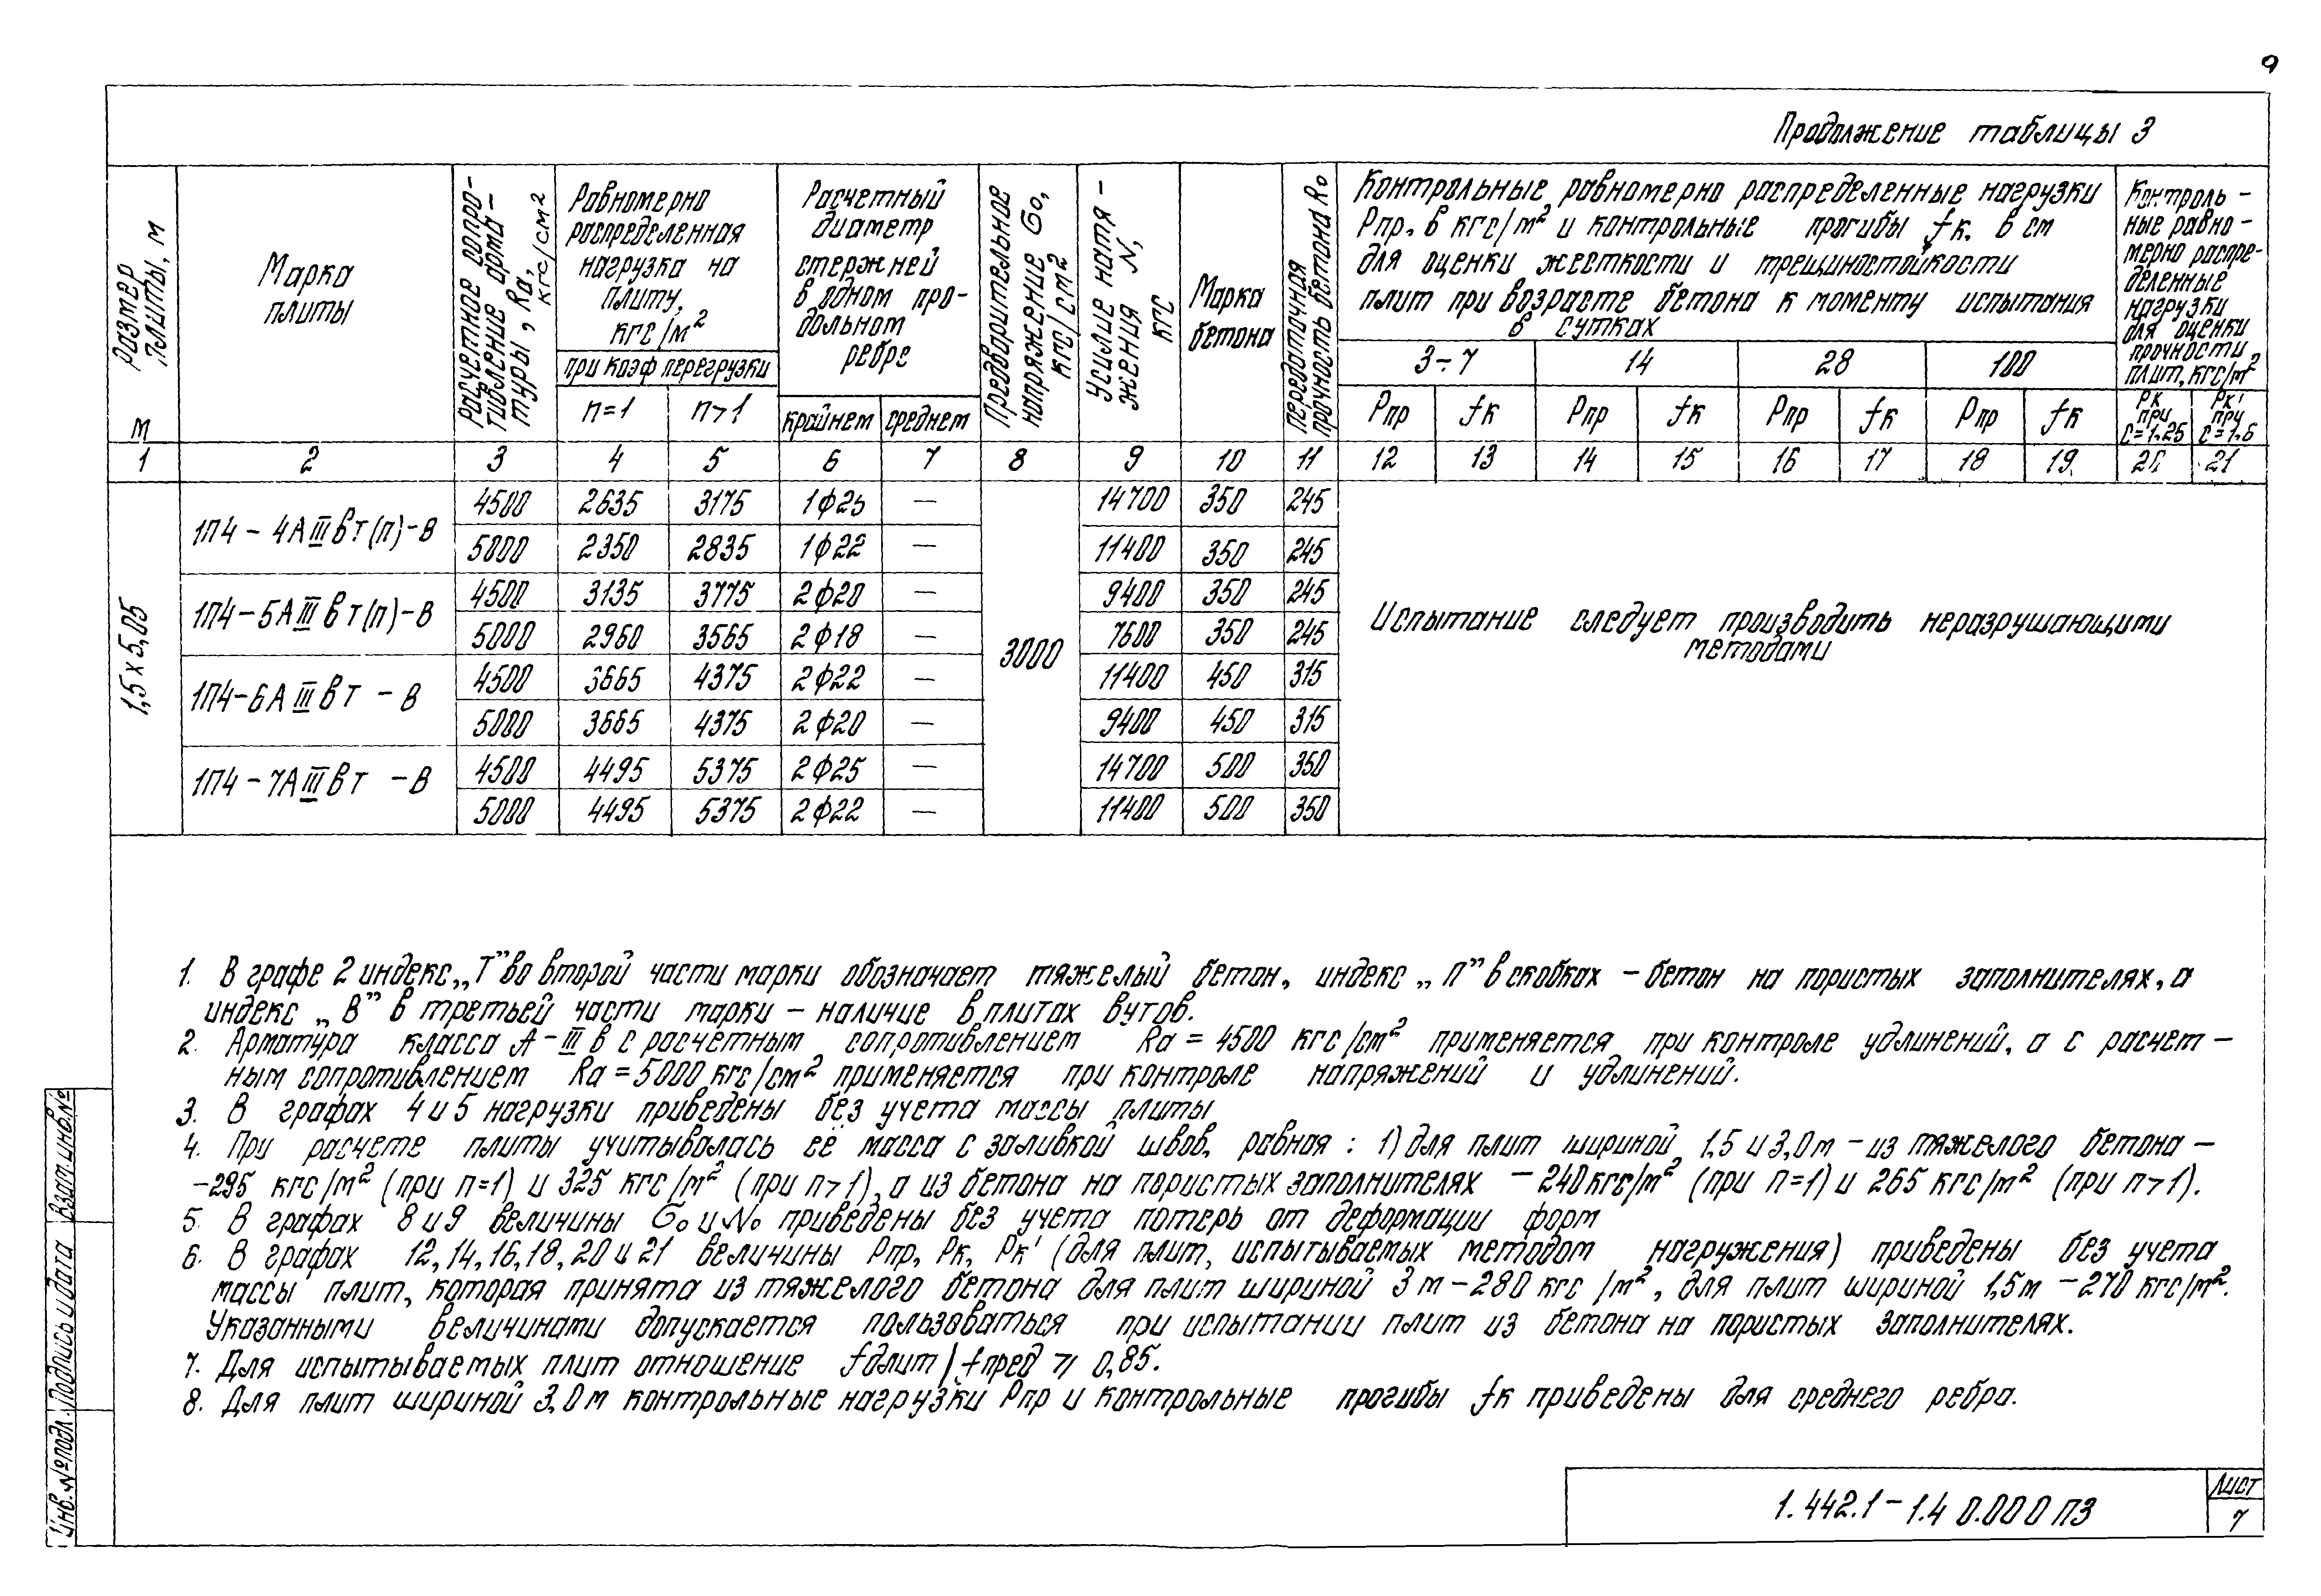 9
Продолжение таблицы 3
Размер плиты, м
М
Марка
плиты
Расчетное сопро-
тивление арма-
туры, Rа,
кгс/см2
Равномерно
распределенная
нагрузка на
плиту,
кгс/м2
при коэф перегрузки
п=1
п>1
Расчетный
диаметр
стержней
в одном про-
дольном
ребре
крайнем
среднем
Предварительное
напряжение Gо,
кгс/см2
Усилие натя-
жения N,
кгс
Марка
бетона
передаточная
прочность бетона Rо
Контрольные равномерно распределенные нагрузки
Рпр. в кгс/м2 и контрольные прогибы fк. в см
для оценки жесткости и трещиностойкости
плит при возрасте бетона к моменту испытания
в сутках
3÷7 14 28 100
Рпр fк Рпр fк Рпр fк Рпр fк
Контроль-
ные равно-
мерно распре-
деленные
нагрузки
для оценки
прочности
плит, кгс/м2
Рк при с=1.25
Рк' при с=1.6
1 2 3 4 5 6 7 8 9 10 11 12 13 14 15 16 17 18 19 20 21
1,5 х 5,05
3000
1П4 - 4АIIIвТ(п)-В
4500 2635 3175 1ф25 — 14700 350 245
5000 2350 2835 1ф22 — 11400 350 245
1П4-5АIIIвТ(п)-В
4500 3135 3775 2ф20 — 9400 350 245
5000 2960 3565 2ф18 — 7600 350 245
1П4-6АIIIвТ - В
4500 3665 4375 2ф22 — 11400 450 315
5000 3665 4375 2ф20 — 9400 450 315
1П4-7АIIIвТ - В
4500 4495 5375 2ф25 — 14700 500 350
5000 4495 5375 2ф22 — 11400 500 350
Испытание следует производить неразрушающими
методами
1. В графе 2 индекс „Т” во второй части марки обозначает тяжелый бетон, индекс „П” в скобках - бетон на пористых заполнителях, а
индекс „В” в третьей части марки - наличие в плитах вутов.
2. Арматура класса А-III в с расчетным сопротивлением Rа = 4500 кгс/см2 применяется при контроле удлинений, а с расчет-
ным сопротивлением Rа = 5000 кгс/см2 применяется при контроле напряжений и удлинений.
3. В графах 4 и 5 нагрузки приведены без учета массы плиты
4. При расчете плиты учитывалась её масса с заливкой швов, равная : 1) для плит шириной 1,5 и 3,0м - из тяжелого бетона -
-295 кгс/м2 (при п=1) и 325 кгс/м2 (при п>1), а из бетона на пористых заполнителях - 240кгс/м2 (при п=1) и 265 кгс/м2 (при п>1).
5. В графах 8 и 9 величины Gо и Nо приведены без учета потерь от деформации форм
6. В графах 12, 14, 16, 18, 20 и 21 величины Рпр, Рк, Рк' (для плит, испытываемых методом нагружения) приведены без учета
массы плит, которая принята из тяжелого бетона для плит шириной 3 м - 280 кгс/м2, для плит шириной 1,5м - 270 кгс/м2.
Указанными величинами допускается пользоваться при испытании плит из бетона на пористых заполнителях.
7. Для испытываемых плит отношение fдлит/fпред ⩾ 0,85.
8. Для плит шириной 3,0м контрольные нагрузки Рпр и контрольные прогибы fк приведены для среднего ребра.
Инв.№подл. Подпись и дата Взам.инв.№
1.442.1-1.4 0.000 ПЗ
Лист
7